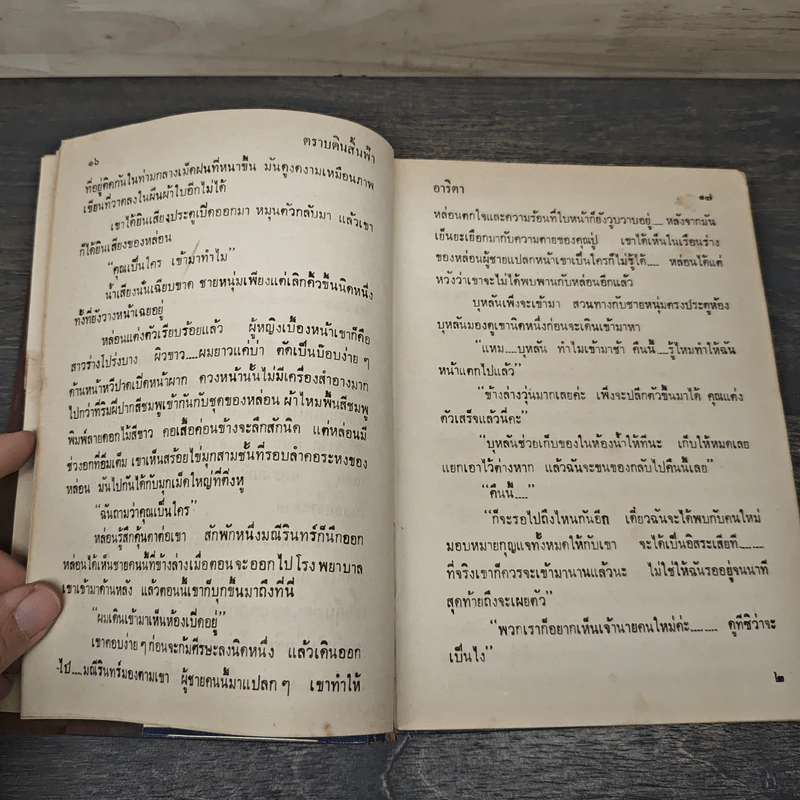 ๑๖
ตราบดินสิ้นฟ้า
ที่อยู่ติดกันในท่ามกลางเม็ดฝนที่หนาขึ้น มันดูงดงามเหมือนภาพ
เขียนที่วาดลงในผืนผ้าใบอีกไม่ได้
เขาได้ยินเสียงประตูเปิดออกมา หมุนตัวกลับมา แล้วเขา
ก็ได้ยินเสียงของหล่อน
“คุณเป็นใคร เข้ามาทำไม”
น้ำเสียงนั้นเฉียบขาด ชายหนุ่มเพียงแต่เลิกคิ้วขึ้นนิดหนึ่ง
ทั้งที่ยังวางหน้าเฉยอยู่
หล่อนแต่งตัวเรียบร้อยแล้ว ผู้หญิงเบื้องหน้าเขาก็คือ
สาวร่างโปร่งบาง ผิวขาว....ผมยาวแค่บ่า ตัดเป็นบ๊อบง่าย ๆ
ด้านหน้าหวีปาดเปิดหน้าผาก ดวงหน้านั้นไม่มีเครื่องสำอางมาก
ไปกว่าที่ริมฝีปากสีชมพูเข้ากันกับชุดของหล่อน ผ้าไหมพื้นสีชมพู
พิมพ์ลายดอกไม้สีขาว คอเสื้อค่อนข้างจะลึกสักนิด แต่หล่อนมี
ช่วงอกที่อิ่มเต็ม เขาเห็นสร้อยไข่มุกสามชั้นที่รอบลำคอระหงของ
หล่อน มันไปกันได้กับมุกเม็ดใหญ่ที่ติ่งหู
“ฉันถามว่าคุณเป็นใคร”
หล่อนรู้สึกคุ้นตาต่อเขา สักพักหนึ่งมณีรินทร์ก็นึกออก
หล่อนได้เห็นชายคนนี้ที่ข้างล่างเมื่อตอนจะออกไปโรงพยาบาล
เขาเข้ามาด้านหลัง แล้วตอนนี้เขาก็บุกขึ้นมาถึงที่นี่
“ผมเดินเข้ามาเห็นห้องเปิดอยู่”
เขาตอบง่าย ๆ ก่อนจะก้มศีรษะลงนิดหนึ่ง แล้วเดินออก
ไป....มณีรินทร์มองตามเขา ผู้ชายคนนี้มาแปลก ๆ เขาทำให้
อาริตา
๑๗
หล่อนตกใจและความร้อนที่ใบหน้าก็ยังวูบวาบอยู่.... หลังจากมัน
เย็นยะเยือกมากับความตายของคุณปู่ เขาได้เห็นในเรือนร่าง
ของหล่อนผู้ชายแปลกหน้าเขาเป็นใครก็ไม่รู้ได้.... หล่อนได้แต่
หวังว่าเขาจะไม่ได้พบพานกับหล่อนอีกแล้ว
บุหลันเพิ่งจะเข้ามา สวนทางกับชายหนุ่มตรงประตูห้อง
บุหลันมองดูเขานิดหนึ่งก่อนจะเดินเข้ามาหา
“แหม....บุหลัน ทำไมเข้ามาช้า คืนนี้....รู้ไหมทำให้ฉัน
หน้าแตกไปแล้ว”
“ข้างล่างวุ่นมากเลยค่ะ เพิ่งจะปลีกตัวขึ้นมาได้ คุณแต่ง
ตัวเสร็จแล้วนี่คะ”
“บุหลันช่วยเก็บของในห้องน้ำให้ทีนะ เก็บให้หมดเลย
แยกเอาไว้ต่างหาก แล้วฉันจะขนของกลับไปคืนนี้เลย”
“คืนนี้....”
“ก็จะรอไปถึงไหนกันอีก เดี๋ยวฉันจะได้พบกับคนใหม่
มอบหมายกุญแจทั้งหมดให้กับเขา จะได้เป็นอิสระเสียที........
ที่จริงเขาก็ควรจะเข้ามานานแล้วนะ ไม่ใช่ให้ฉันรออยู่จนนาที
สุดท้ายถึงจะเผยตัว”
“พวกเราก็อยากเห็นเจ้านายคนใหม่ค่ะ........ ดูทีซิว่าจะ
เป็นไง”
๒